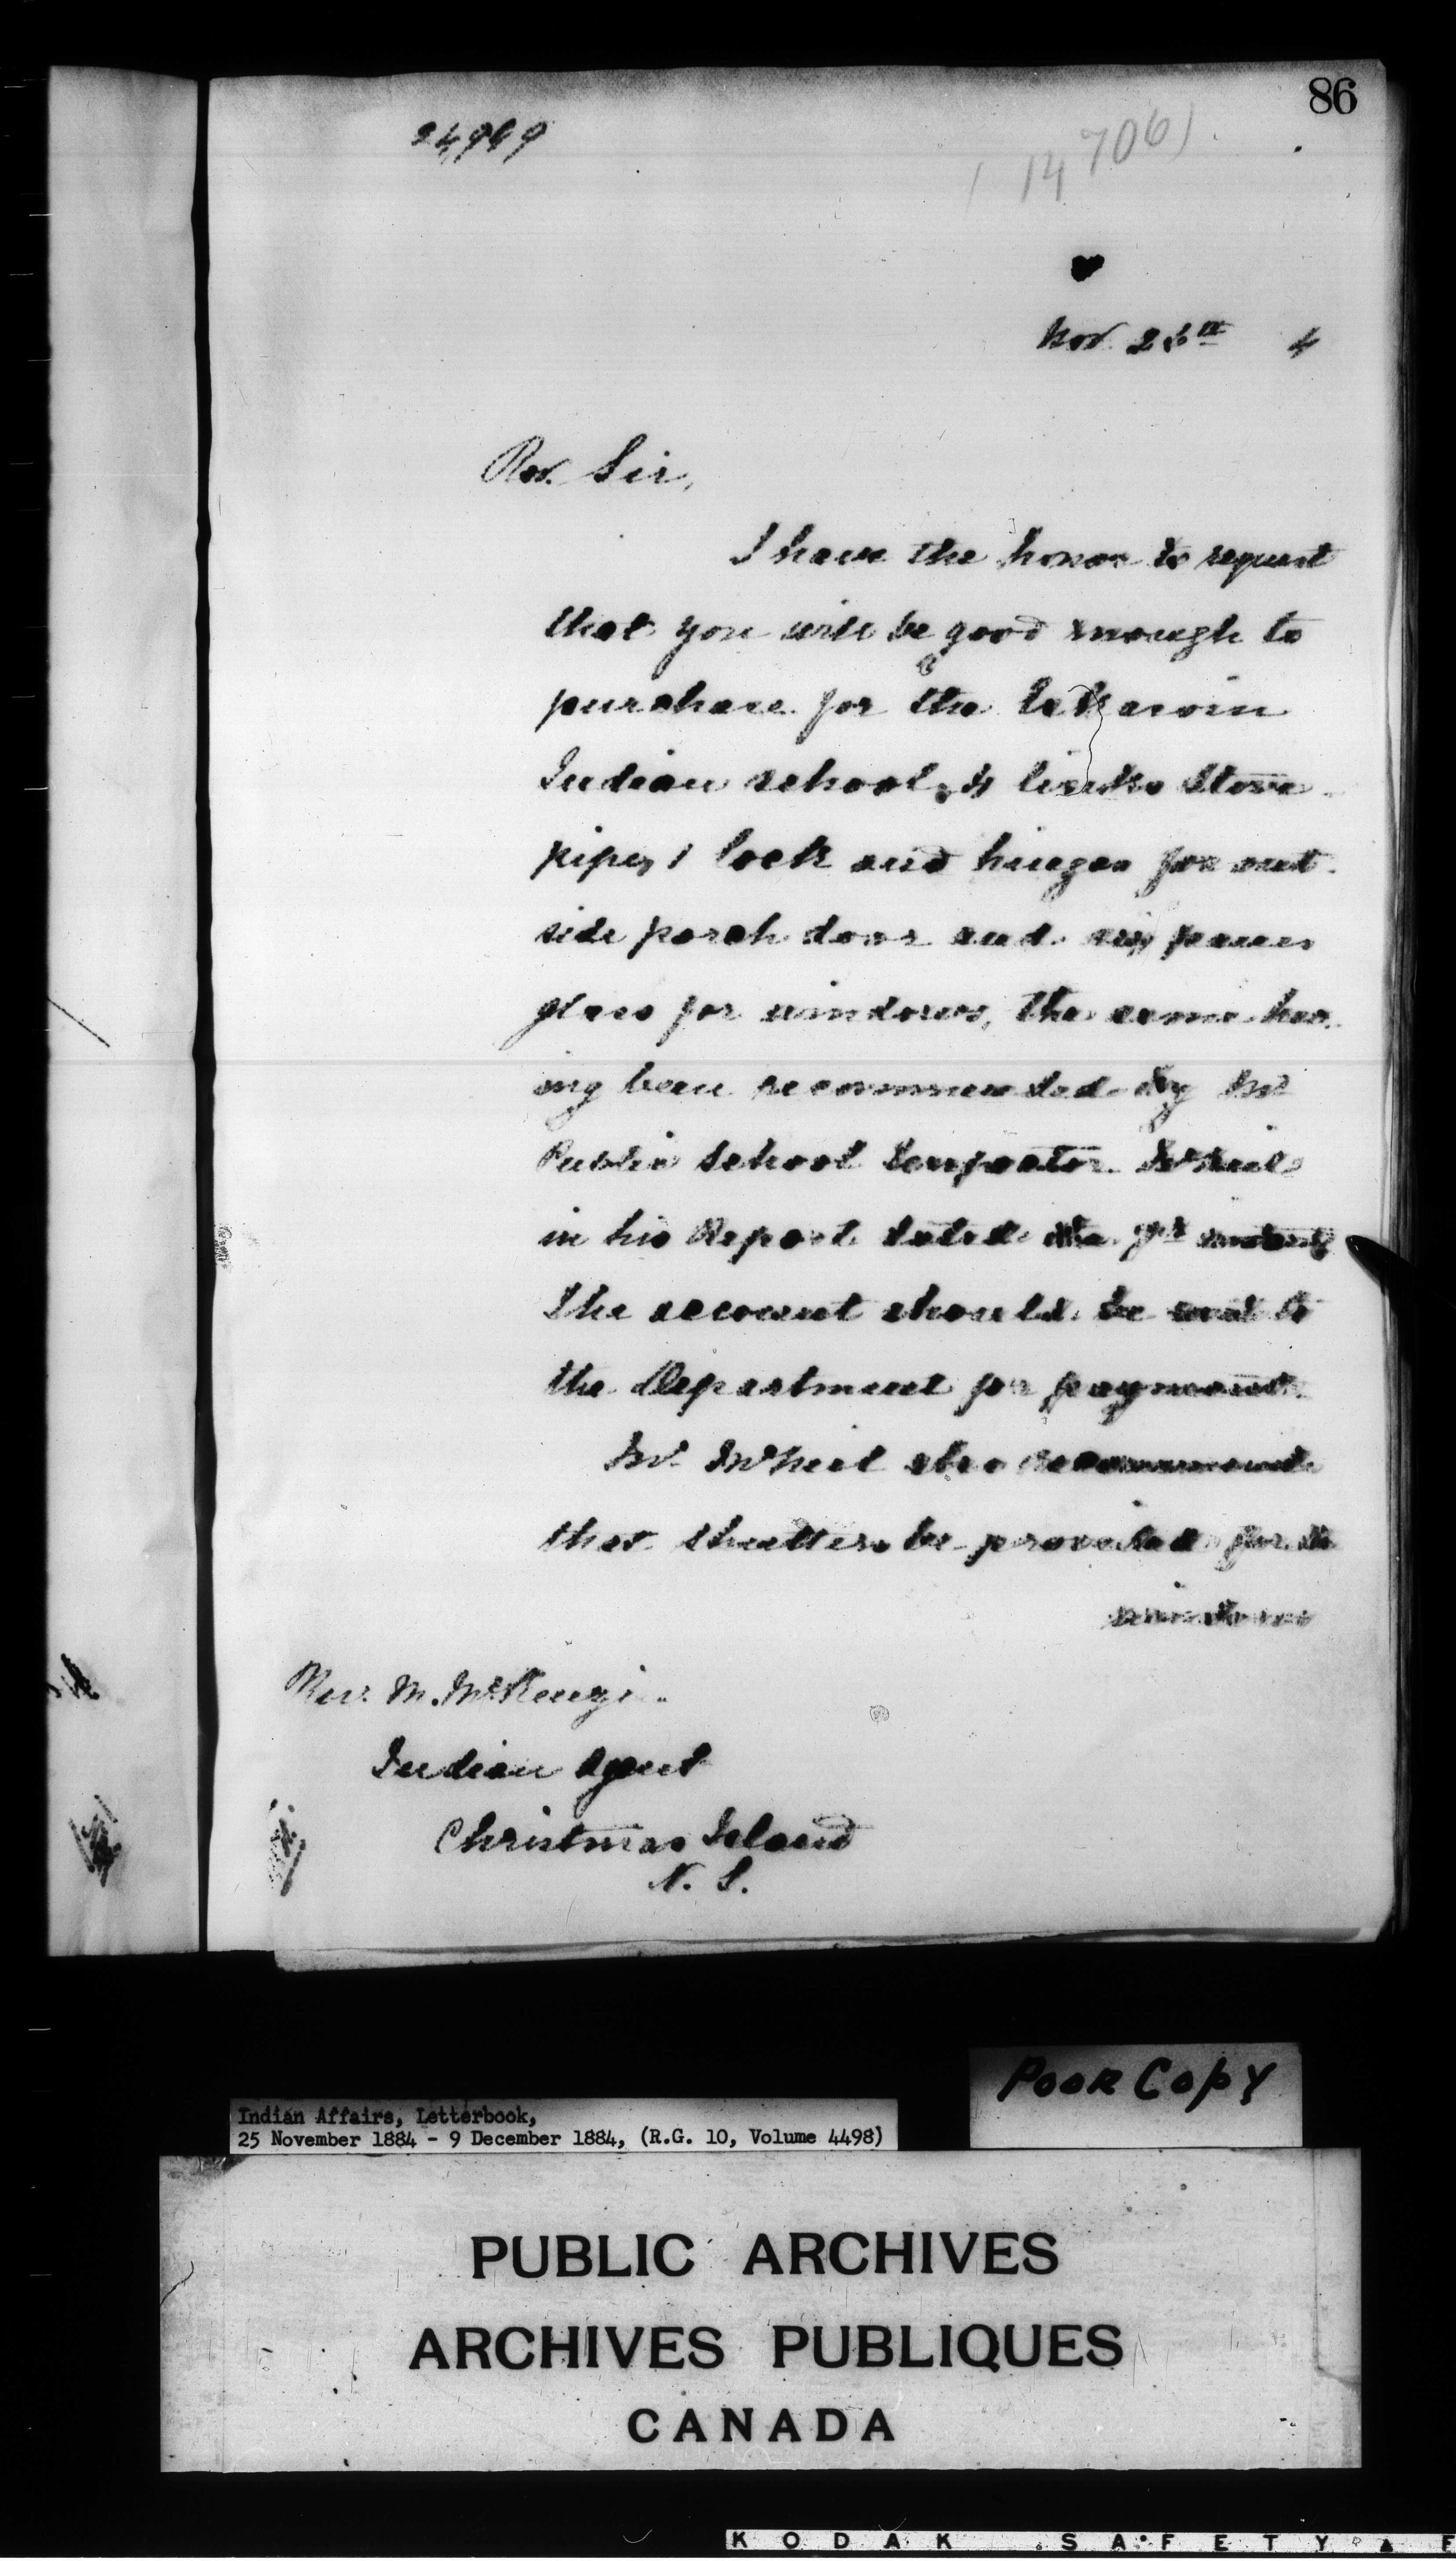 86
24969
14706
Nov. 26th 4
Rev. Sir,
I have the honor to request
that you will be good enough to
purchase for the Eskasoni
Indian school, 4 links stove
pipe, 1 lock and hinges for out-
side porch door and six panes
glass for windows, the same hav-
ing been recommended by Mr
Public School Inspector McNeil
in his Report dated the instant
The account should be sent to
the Department for payment.
Mr McNeil also recommends
that shutters be provided for the
windows
Rev. M. McKenzie
Indian Agent
Christmas Island
N. S.
Poor Copy
Indian Affairs, Letterbook,
25 November 1884 - 9 December 1884, (R.G. 10, Volume 4498)
PUBLIC ARCHIVES
ARCHIVES PUBLIQUES
CANADA
KODAK SAFETY